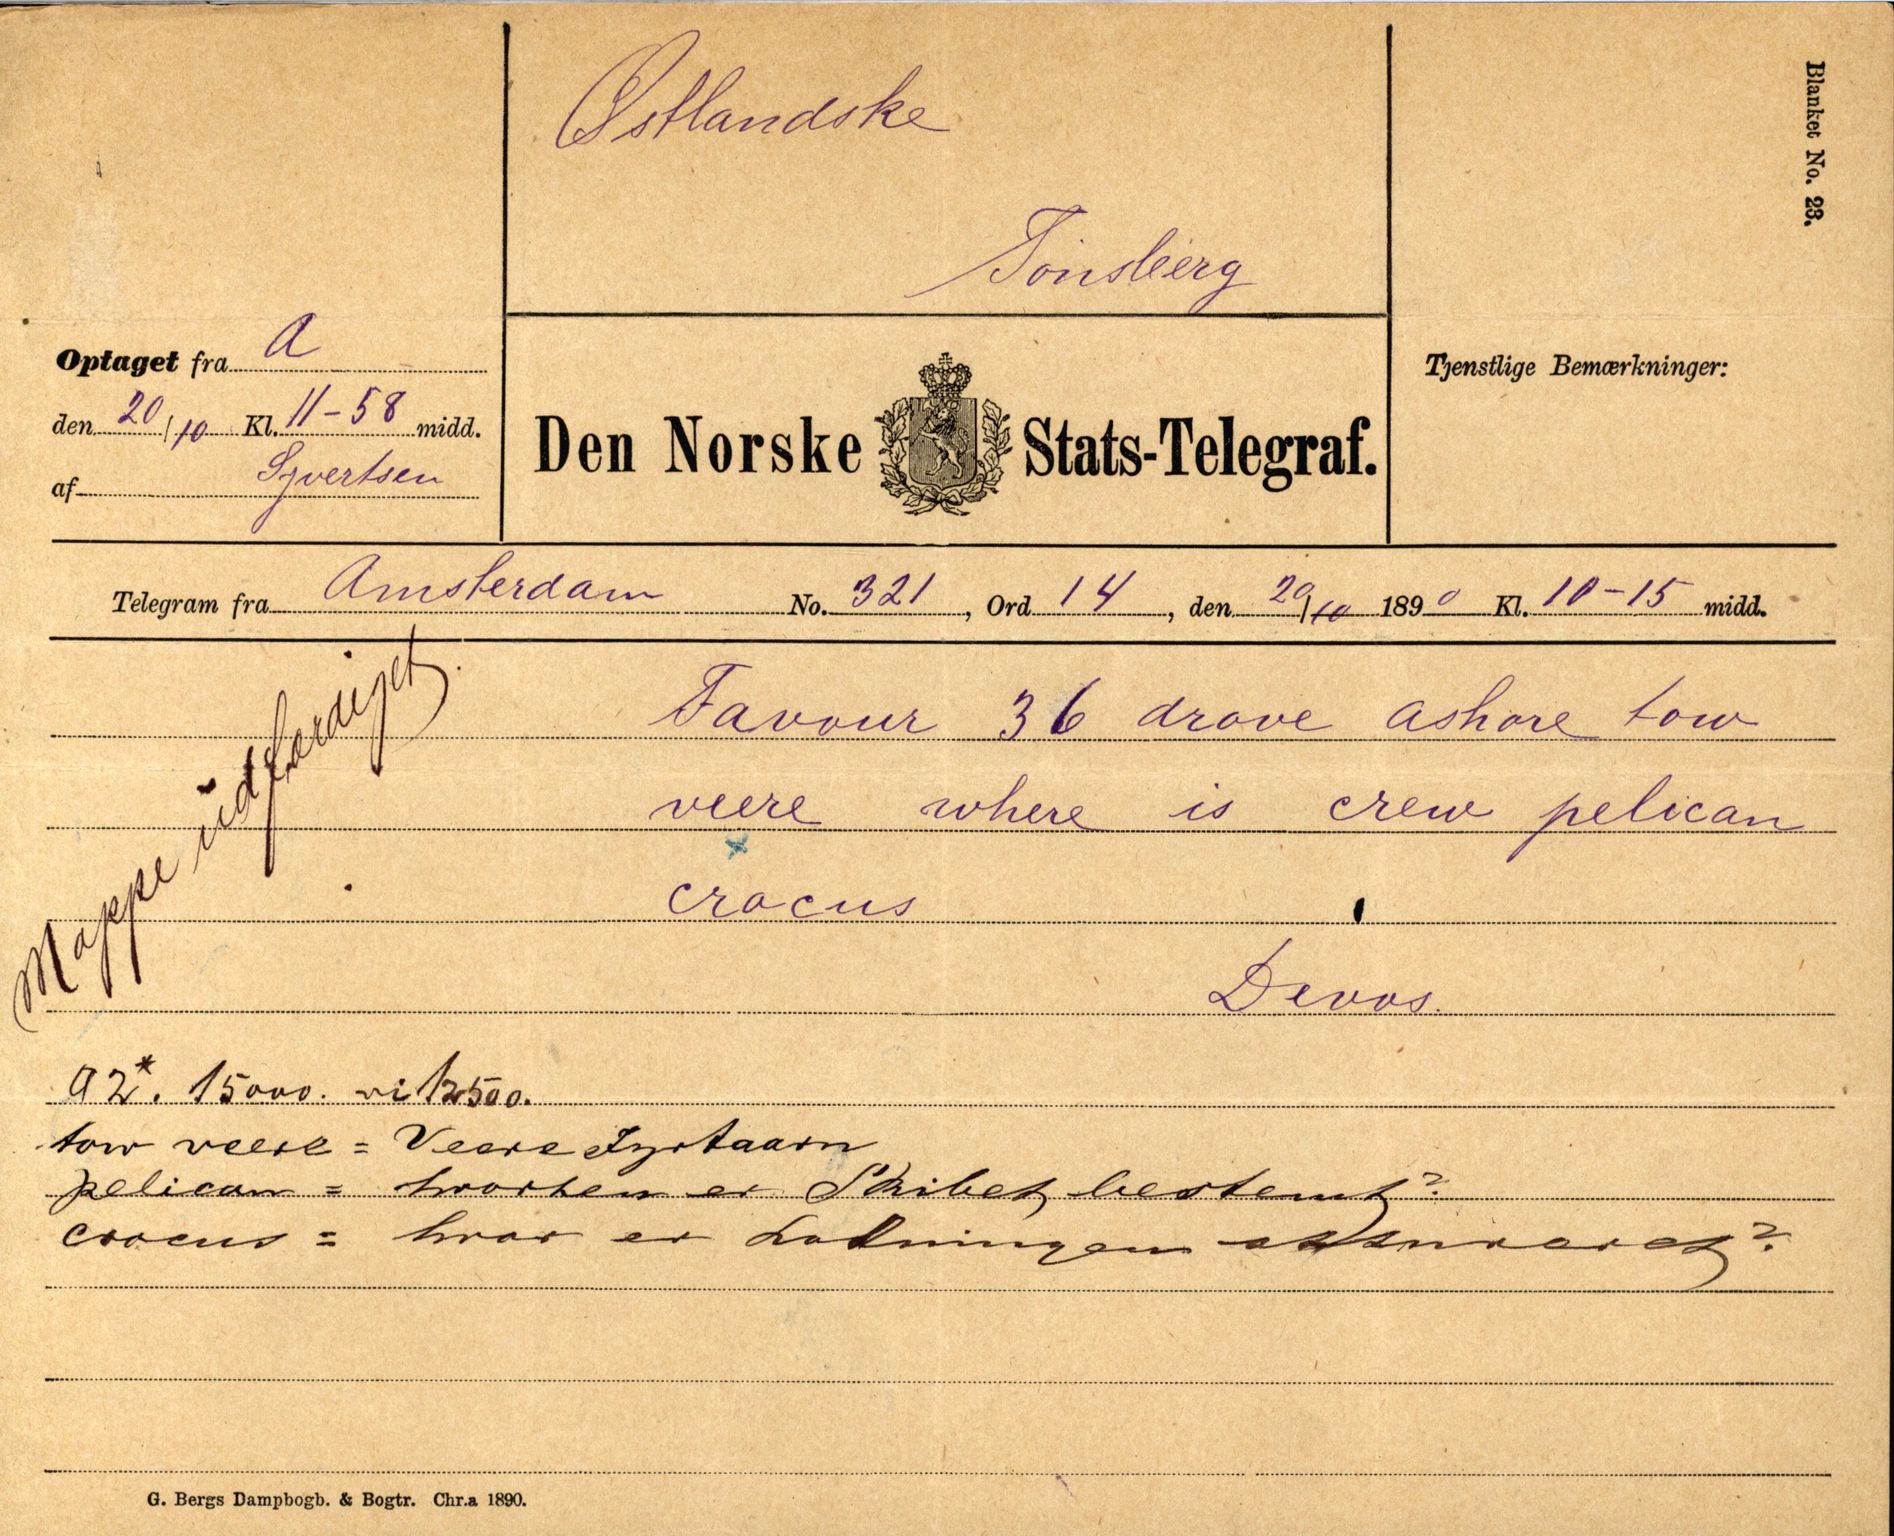 Østlandske
Tönsberg
Blanket No. 23.
Optaget fra A
den 20/10 Kl. 11-58 midd.
af Syvertsen
Den Norske Stats-Telegraf.
Tjenstlige Bemærkninger:
Telegram fra Amsterdam No. 321, Ord 14, den 20/10 1890 Kl. 10-15 midd.
Mappe udfærdiget.
Favour 36 drove ashore tow
veere where is crew pelican
crocus
Devos.
A2*. 15000. vi 12500.
tow veere = Veere Fyrtaarn
pelican = hvorhen er Skibet bestemt?
crocus = hvor er Ladningen assureret?
G. Bergs Dampbogb. & Bogtr. Chr.a 1890.